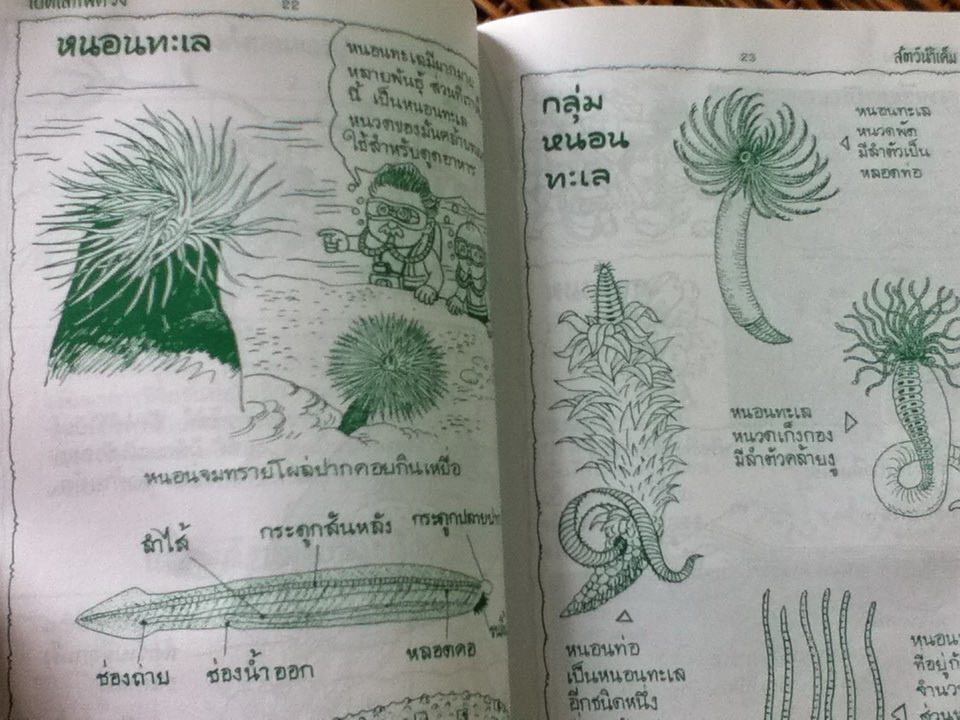 22
หนอนทะเล
หนอนทะเลมีมากมาย
หลายพันธุ์ ส่วนที่
นี้ เป็นหนอนทะเล
หนวดของมันคล้าย
ใช้สำหรับดูดอาหาร
หนอนจมทรายโผล่ปากคอยกินเหยื่อ
ลำไส้
กระดูกสันหลัง
กระดูกปลาย
ช่องถ่าย
ช่องน้ำออก
หลอดคอ
23
สัตว์น้ำเค็ม
กลุ่ม
หนอน
ทะเล
หนอนทะเล
หนวดพัด
มีลำตัวเป็น
หลอดท่อ
หนอนทะเล
หนวดเก็งกอง
มีลำตัวคล้ายงู
หนอนท่อ
เป็นหนอนทะเล
อีกชนิดหนึ่ง
หนอน
ที่อยู่
จำนวน